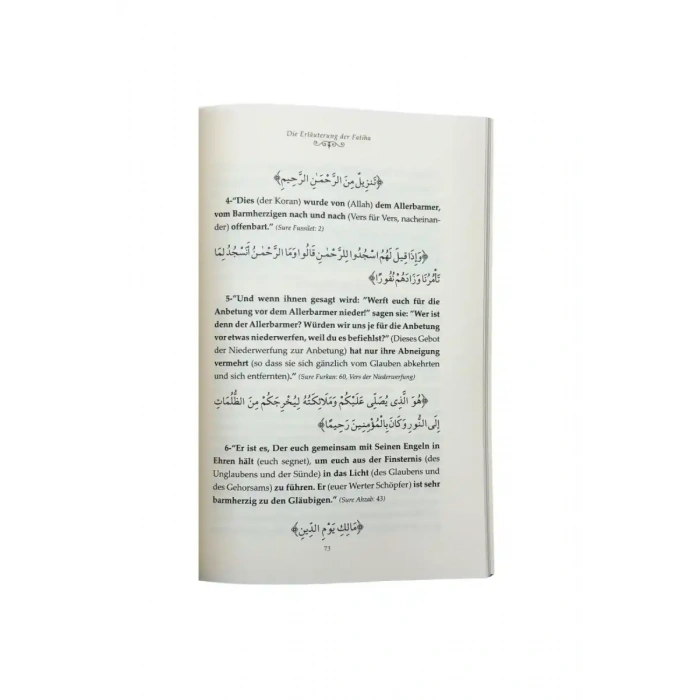 Die Erläuterung der Fatiha
﴿تَنْزِيلٌ مِنَ الرَّحْمٰنِ الرَّحِيمِ﴾
4-“Dies (der Koran) wurde von (Allah) dem Allerbarmer,
vom Barmherzigen nach und nach (Vers für Vers, nacheinan-
der) offenbart.” (Sure Fussilet: 2)
﴿وَإِذَا قِيلَ لَهُمُ اسْجُدُوا لِلرَّحْمٰنِ قَالُوا وَمَا الرَّحْمٰنُ أَنَسْجُدُ لِمَا
تَأْمُرُنَا وَزَادَهُمْ نُفُورًا﴾
5-“Und wenn ihnen gesagt wird: “Werft euch für die
Anbetung vor dem Allerbarmer nieder!” sagen sie: “Wer ist
denn der Allerbarmer? Würden wir uns je für die Anbetung
vor etwas niederwerfen, weil du es befiehlst?” (Dieses Gebot
der Niederwerfung zur Anbetung) hat nur ihre Abneigung
vermehrt (so dass sie sich gänzlich vom Glauben abkehrten
und sich entfernten).” (Sure Furkan: 60, Vers der Niederwerfung)
﴿هُوَ الَّذِي يُصَلِّي عَلَيْكُمْ وَمَلَائِكَتُهُ لِيُخْرِجَكُمْ مِنَ الظُّلُمَاتِ
إِلَى النُّورِ وَكَانَ بِالْمُؤْمِنِينَ رَحِيمًا﴾
6-“Er ist es, Der euch gemeinsam mit Seinen Engeln in
Ehren hält (euch segnet), um euch aus der Finsternis (des
Unglaubens und der Sünde) in das Licht (des Glaubens und
des Gehorsams) zu führen. Er (euer Werter Schöpfer) ist sehr
barmherzig zu den Gläubigen.” (Sure Ahzab: 43)
﴿مَالِكِ يَوْمِ الدِّينِ﴾
73